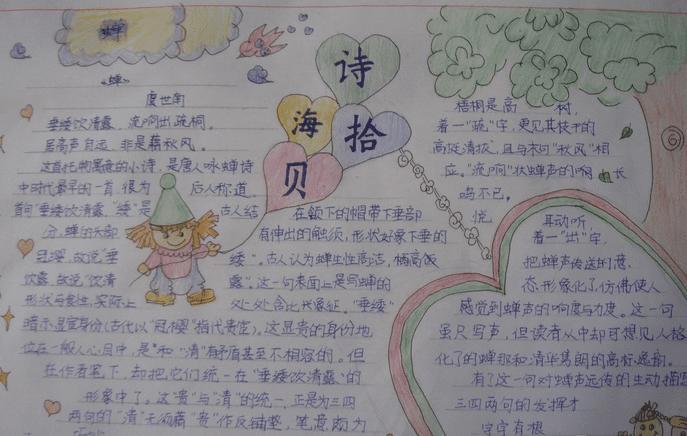 蝉
诗
海
拾
贝
《蝉》
虞世南
垂緌饮清露，流响出疏桐。
居高声自远，非是藉秋风。
这首托物寓意的小诗，是唐人咏蝉诗
中时代最早的一首，很为后人称道。
首句“垂緌饮清露，“緌”是古人结
在颔下的帽带下垂部
分，蝉的头部有伸出的触须，形状好象下垂的
冠缨，故说“垂緌”。古人认为蝉生性高洁，栖高饮
露，故说“饮清露”。这一句表面上是写蝉的
形状与食性，实际上处处含比兴象征。“垂緌”
暗示显宦身份(古代以“冠缨”指代贵宦)。这显贵的身份地
位在一般人心目中，是和“清”有矛盾甚至不相容的。但
在作者笔下，却把它们统一在“垂緌饮清露”的
形象中了。这“贵”与“清”的统一，正是为三四
两句的“清”无须藉“贵”作反铺垫，笔意颇为
梧桐是高树，
着一“疏”字，更见其枝干的
高挺清拔，且与末句“秋风”相
应。“流响”状蝉声的 长
鸣不已，
悦耳动听
着一“出”字，
把蝉声传送的意
态形象化了，仿佛使人
感觉到蝉声的响度与力度。这一句
虽只写声，但读者从中却可想见人格
化了的蝉那和清华隽朗的高标逸韵。
有了这一句对蝉声远传的生动描
三四两句的发挥才
字字有根